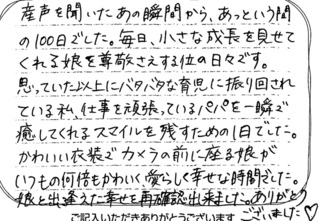 産声を聞いたあの瞬間から、あっという間
の100日でした。毎日、小さな成長を見せて
くれる娘を尊敬さえする位の日々です。
思っていた以上にバタバタな育児に振り回され
ている私、仕事を頑張っているパパを一瞬で
癒してくれるスマイルを残すための1日でした。
かわいい衣装でカメラの前に座る娘が
いつもの何倍もかわいく愛らしく幸せな時間でした。
娘と出逢えた幸せを再確認出来ました。ありがとう
ございました♡
ご記入いただきありがとうございます